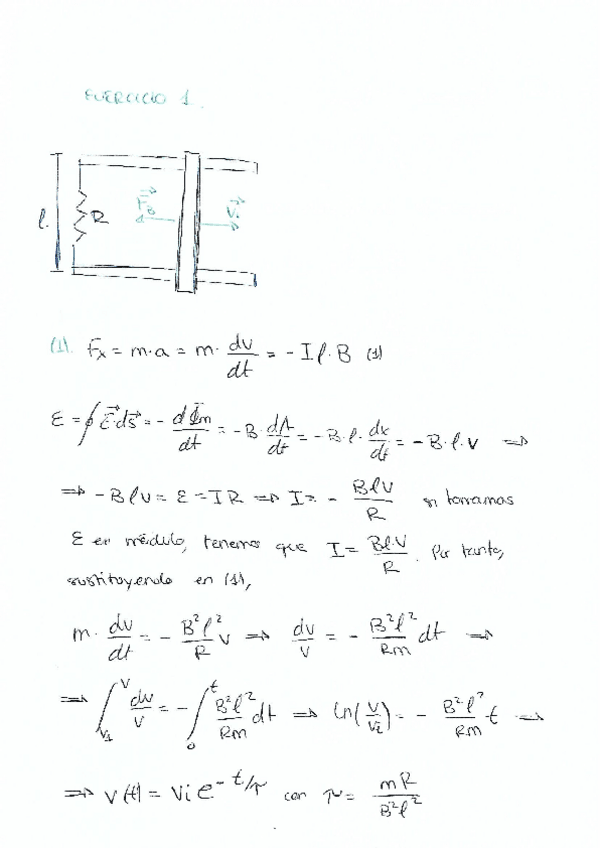 EJERCICIO 1.
l. R F_B→ V_i→
(1). Fx = m·a = m· dv/dt = - I l·B (1)
ε = ∮ E→ds→ = - dΦm/dt = -B· dA/dt = -B·l· dx/dt = -B·l·v ⇒
⇒ -Blv = ε = IR ⇒ I = - Blv/R si tomamos
ε en módulo, tenemos que I = Bl·v/R. Por tanto,
sustituyendo en (1),
m· dv/dt = - B²l²/R v ⇒ dv/v = - B²l²/Rm dt ⇒
⇒ ∫_{vi}^{v} dv/v = -∫_0^t B²l²/Rm dt ⇒ ln(v/vi) = - B²l²/Rm t ⇒
⇒ v(t) = vi e^{-t/τ} con τ = mR/B²l²